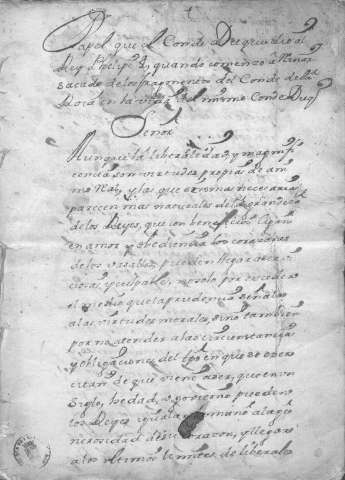 Papel que el Conde Duque dio al
Rey Phelipe 4, quando comenzo a Reinar
sacado de los fragmentos del Conde de la
Roca en la vida del mismo Conde Duq
Señor
Aunque la liberalidad, y magnifi
cencia son virtudes propias de ani
mo Real, y las que otro mas necesaria
parecen mas naturales de la grandeza
de los Reyes, que con beneficios
en amor y obediencia los corazones
de los vasallos, pueden llegar a ser vi
ciosas, y culpables, no solo por exceder
el medio que la prudencia señala
a las virtudes morales, sino tambien
por no atender a las circunstancias
y obligaciones del tpo en que se exer
citan de que viene a ser, que en un
siglo, hedad, o govierno pueden
los Reyes igualar la mano a la ge
nerosidad de su corazon, y llegar
a los ultimos limites de liberali